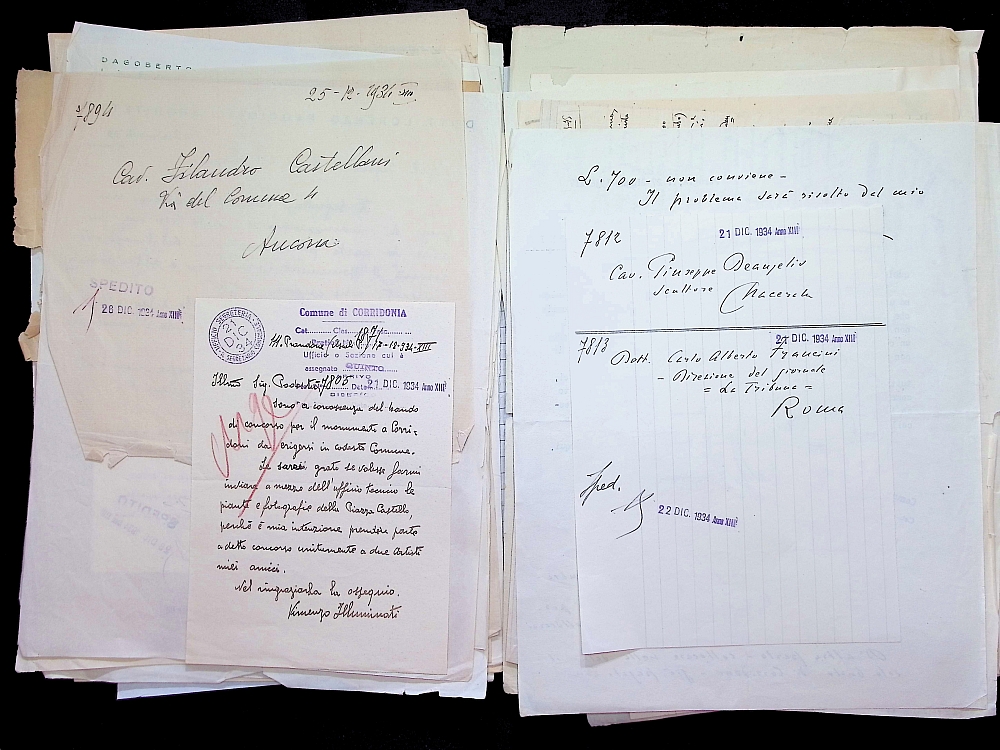 DAGOBERTO
7894
25-12-1934 XIII
Cav. Filandro Castellani
Via del Comune 4
Ancona
SPEDITO
28 DIC. 1934 Anno XIII
Comune di CORRIDONIA
Cat. Clas.
17-12-934-XIII
Ufficio o Sezione cui è
assegnato QUINTO
ARRIVO
Ill.mo Sig. Podestà 7805 21 DIC. 1934 Anno XIII
urge
Sono a conoscenza del bando
di concorso per il monumento a Corri-
doni da erigersi in codesto Comune.
Le sarei grato se volesse farmi
inviare a mezzo dell'ufficio tecnico le
piante e fotografie della Piazza Castello,
perchè è mia intenzione prendere parte
a detto concorso unitamente a due Artisti
miei amici.
Nel ringraziarla la ossequio.
Vincenzo Illuminati
L. 700 - non conviene -
Il problema sarà risolto dal mio
7812
21 DIC. 1934 Anno XIII
Cav. Giuseppe Deangelis
Scultore
Macerata
7813
21 DIC. 1934 Anno XIII
Dott. Carlo Alberto Francini
- Direzione del giornale
= La Tribuna =
Roma
Sped.
22 DIC. 1934 Anno XIII